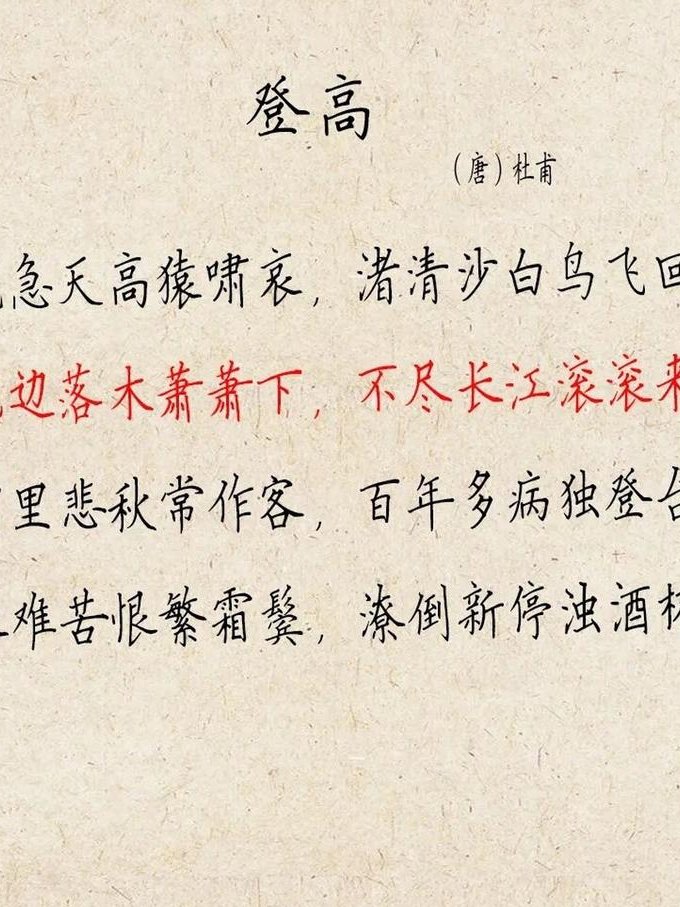 登高
（唐）杜甫
急天高猿啸哀，渚清沙白鸟飞回
边落木萧萧下，不尽长江滚滚来
里悲秋常作客，百年多病独登台
难苦恨繁霜鬓，潦倒新停浊酒杯